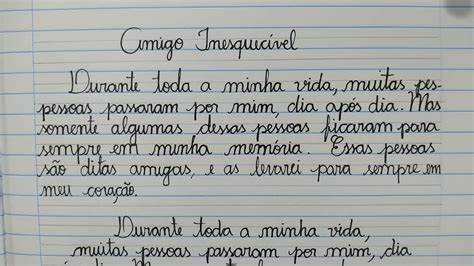 Amigo Inesquicível
Durante toda a minha vida, muitas pes-
pessoas passaram por mim, dia após dia. Mas
somente algumas dessas pessoas ficaram para
sempre em minha memória. Essas pessoas
são ditas amigas, e as levarei para sempre em
meu coração.
Durante toda a minha vida,
muitas pessoas passaram por mim, dia